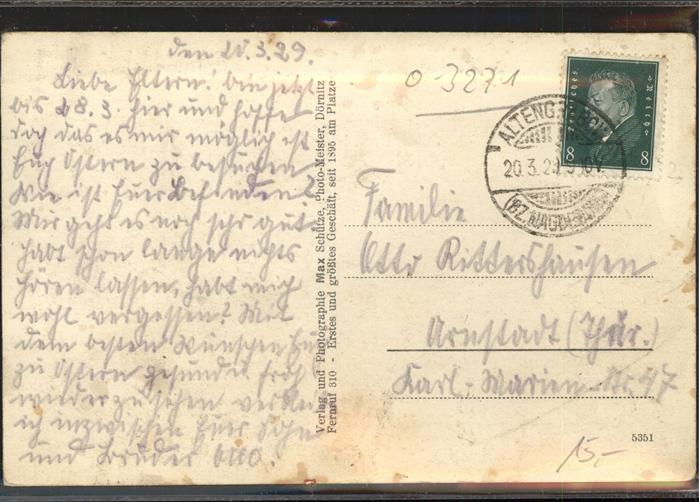 den 20.3.29.
Liebe Eltern! bin jetzt
bis 28.3. hier und hoffe
doch das es mir möglich ist
Euch Ostern zu besuchen.
Wie ist Euer Befinden?
Mir geht es noch sehr gut.
habt schon lange nichts
hören lassen, habt mich
wohl vergessen? Mit
dem besten Wünschen
zu Ostern gesund froh
wieder zu sehen
ich inzwischen Euer Sohn
und Bruder Otto.
Verlag und Photographie Max Schütze, Photo-Meister, Dörnitz
Fernruf 310 - Erstes und größtes Geschäft, seit 1895 am Platze
0 3271
Deutsches Reich
8 8
ALTENGRABOW
20.3.29.
(BZ. MAGDEBURG)
Familie
Otto Rittershausen
Arnstadt (Thür.)
Karl-Marien-Str. 47
5351
15,-